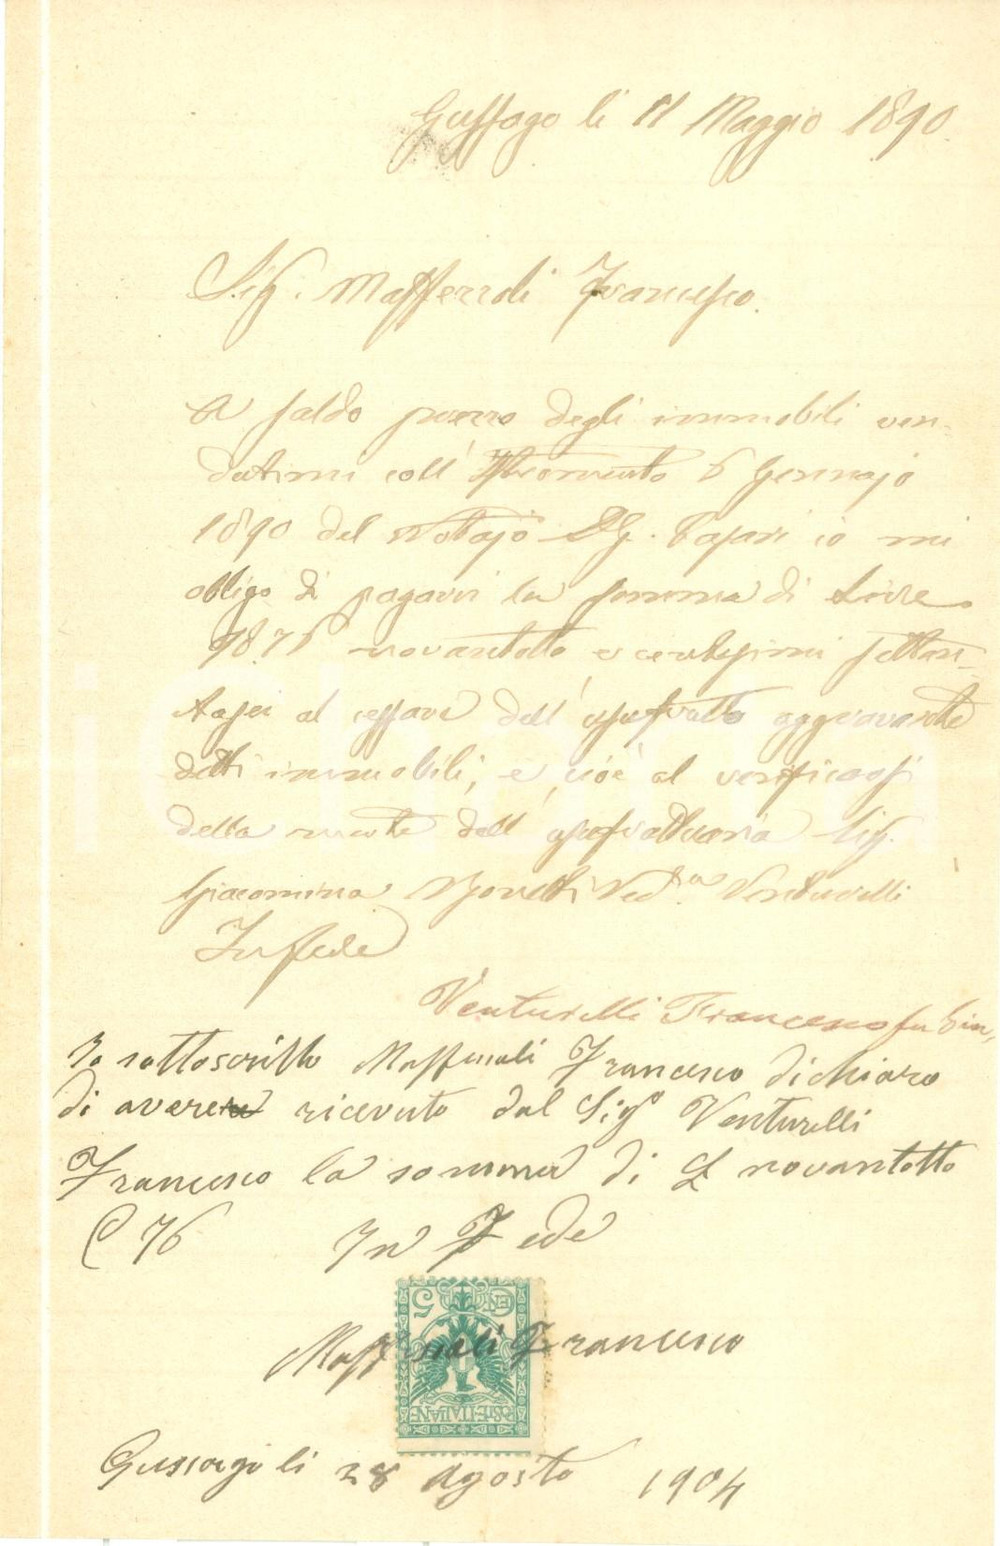 Gussago li 11 Maggio 1890.
Sig. Masserdoli Francesco.
A saldo prezzo degli immobili ven-
dutimi coll' Istromento 6 Gennajo
1890 del Notajo Dr. io mi
obbligo di pagarvi la somma di Lire
98.76 novantotto e centesimi settan-
tasei al cessare dell' usufrutto aggravante
detti immobili, e cioè al verificarsi
della morte dell' usufruttuaria Sig.
Giacomina Ved.a Venturelli
In fede
Venturelli Francesco fu
Io sottoscritto Francesco dichiaro
di avere ricevuto dal Sig.o Venturelli
Francesco la somma di £ novantotto
C 76 In Fede
CENT 5
POSTE ITALIANE
Francesco
Gussago li 28 Agosto 1904